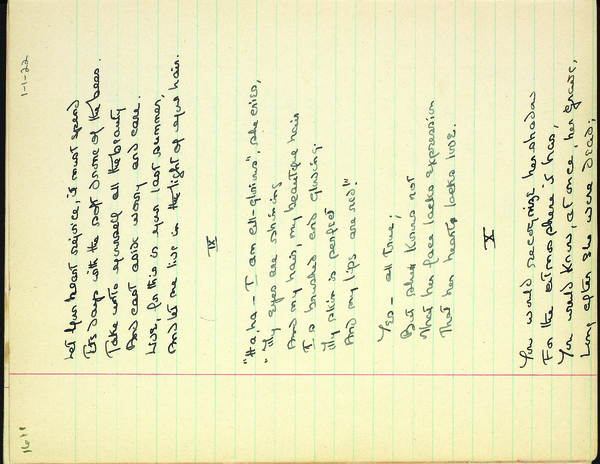 Let your heart rejoice, it must spend
Its days with the soft drone of the bees.
Take unto yourself all the beauty
And cast aside worry and care.
Live, for this is your last summer,
And let me live in the light of your hair.
IX
"Ha, ha – I am all-glorious", she cries,
"My eyes are shining
And my hair, my beautiful hair
Is brushed and glowing.
My skin is perfect
And my lips are red!"
Yes – all true;
But she knows not
That her face lacks expression
That her heart lacks love.
X
You would recognize her shadow
For the atmosphere is hers,
You would know, at once, her grave,
Long after she were dead;
1-1-22